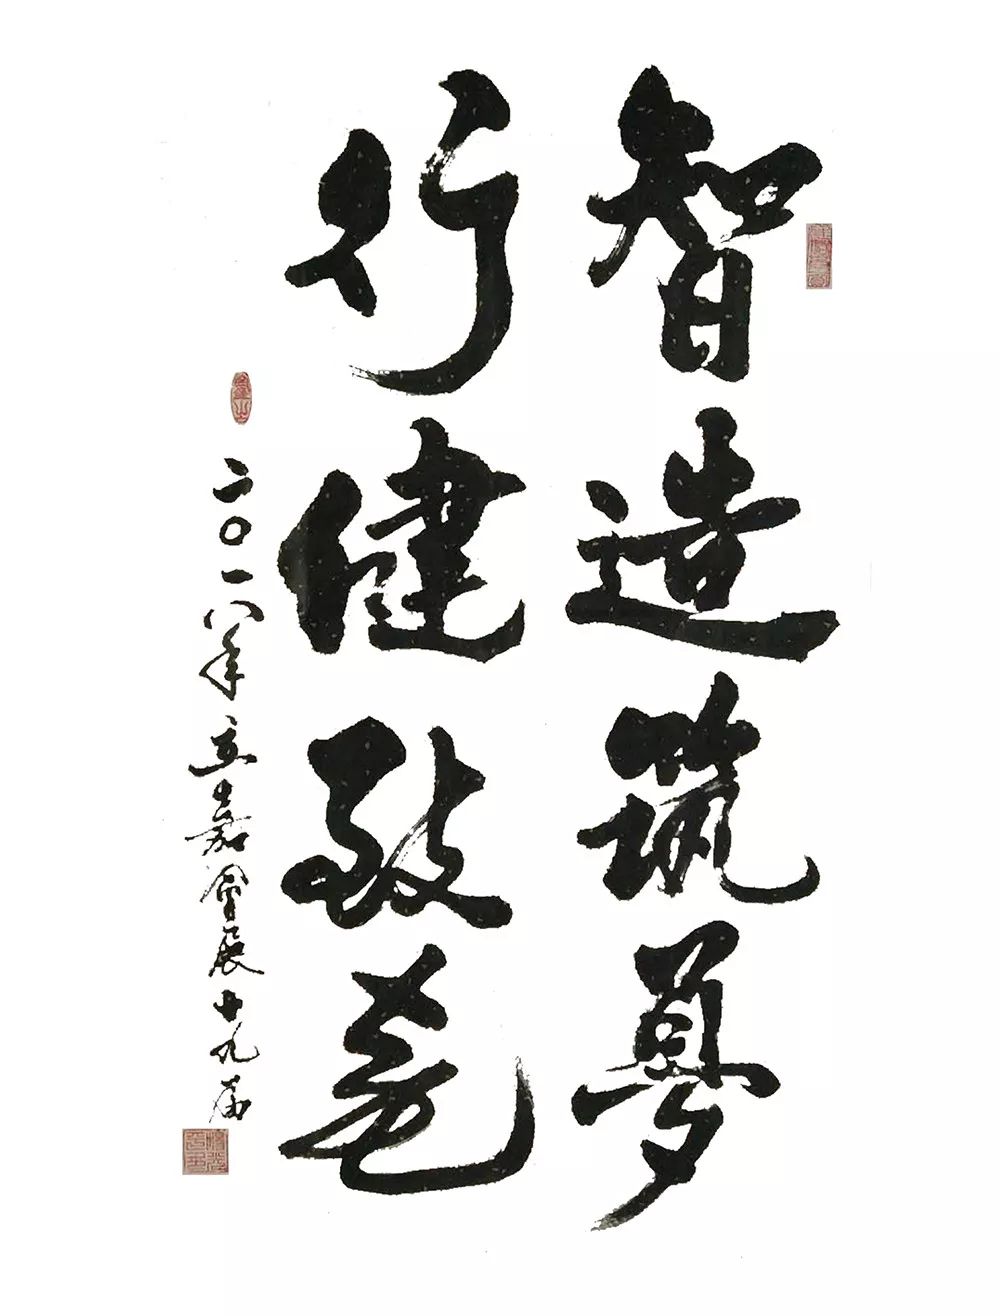 智造筑夢
行健致遠
二〇一八年立嘉會展十九届